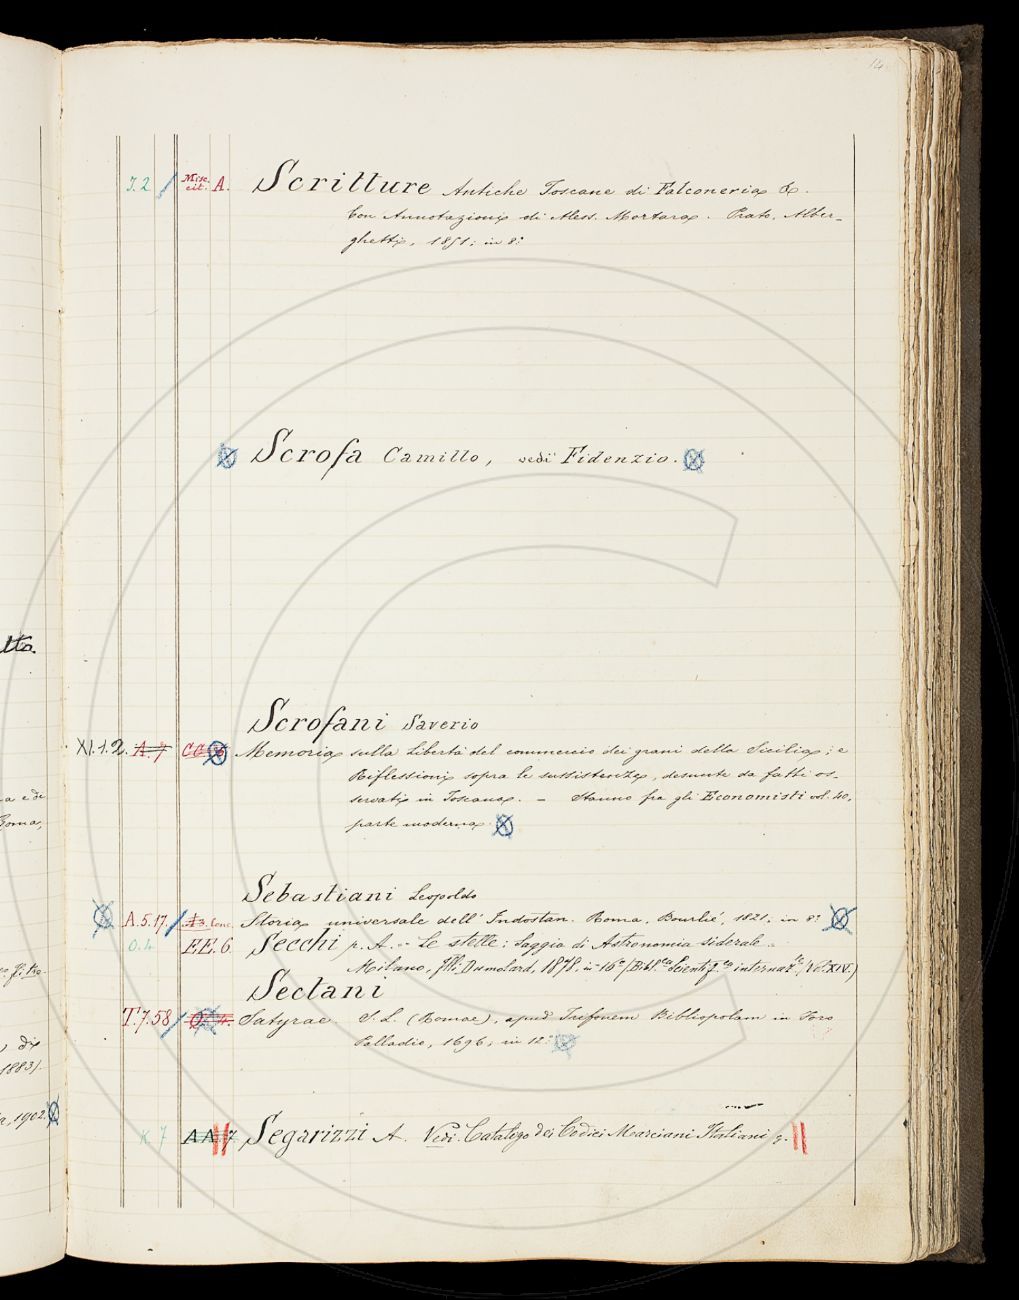 14
J.2 / Misc. cit. A. Scritture Antiche Toscane di Falconeria &.
Con Annotazioni di Aless. Mortara. Prato, Alber-
ghetti, 1851; in 8º
Scrofa Camillo, vedi Fidenzio.
Scrofani Saverio
XI.1.2. A.7 CC Memoria sulla Libertà del commercio dei grani della Sicilia; e
Riflessioni sopra le sussistenze, desunte da fatti os-
servati in Toscana. - Stanno fra gli Economisti vol. 40,
parte moderna.
Sebastiani Leopoldo
A.5.17. / Storia universale dell' Indostan. Roma, Bourlié, 1821; in 8º
O.4. EE.6. Secchi p. A. - Le stelle: Saggio di Astronomia siderale -
Milano, f.lli Dumolard, 1878. in-16º (Bibl.ca Scientif.ca internaz.le (Vol. XIV.)
Sectani
T.7.58 / Satyrae. S. L. (Romae), apud Trifonem Bibliopolam in Foro
Palladio, 1696, in 12º
K.7 AA.7 Segarizzi A. Vedi: Catalogo dei Codici Marciani Italiani